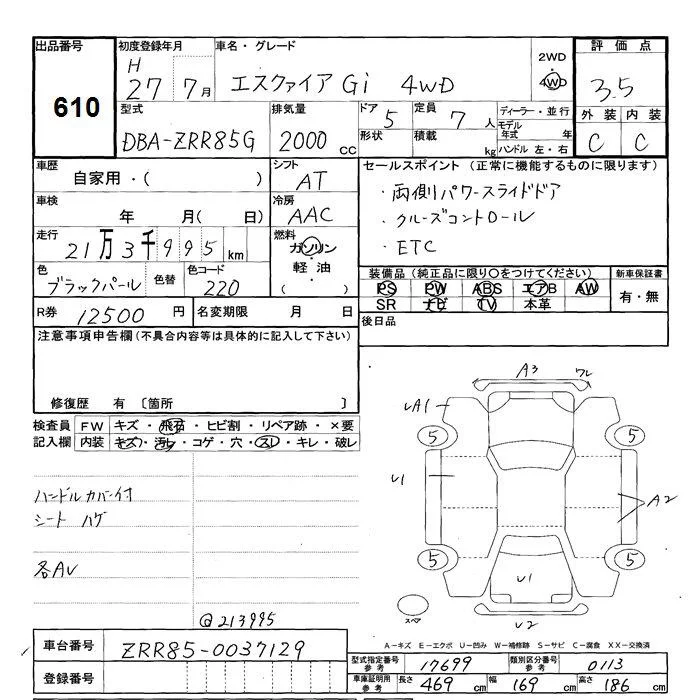 出品番号 初度登録年月 車名・グレード 2WD 評価点
610 H 27年 7月 エスクァイア Gi 4WD 4WD 3.5
型式 排気量 ドア 5 定員 7人 ディーラー・並行 外装 内装
DBA-ZRR85G 2000cc 形状 積載 kg モデル年式 年 C C
ハンドル 左・右
車歴 シフト セールスポイント (正常に機能するものに限ります)
自家用・( ) AT ・両側パワースライドドア
車検 冷房 ・クルーズコントロール
年 月( 日) AAC ・ETC
走行 燃料
21万3千995km ガソリン・軽油・( )
色 色替 色コード 装備品(純正品に限り〇をつけてください) 新車保証書
ブラックパール 220 PS PW ABS エアB AW 有・無
SR ナビ TV 本革
R券 12500円 名変期限 月 日 後日品
注意事項申告欄(不具合内容等は具体的に記入して下さい)
修復歴 有 〔箇所 〕
検査員 FW キズ・飛石・ヒビ割・リペア跡・×要
記入欄 内装 キズ・汚レ・コゲ・穴・スレ・キレ・破レ
ハンドルカバー付
シート ハゲ
各AU
@213995
A3 ワレ
A1
5 5
U1 A2
5 5
U1
スペア U2
車台番号 ZRR85-0037129
登録番号
A-キズ E-エクボ U-凹み W-補修跡 S-サビ C-腐食 XX-交換済
型式指定番号 参考 17699 類別区分番号 参考 0113
車庫証明用 参考 長さ 469cm 幅 169cm 高さ 186cm